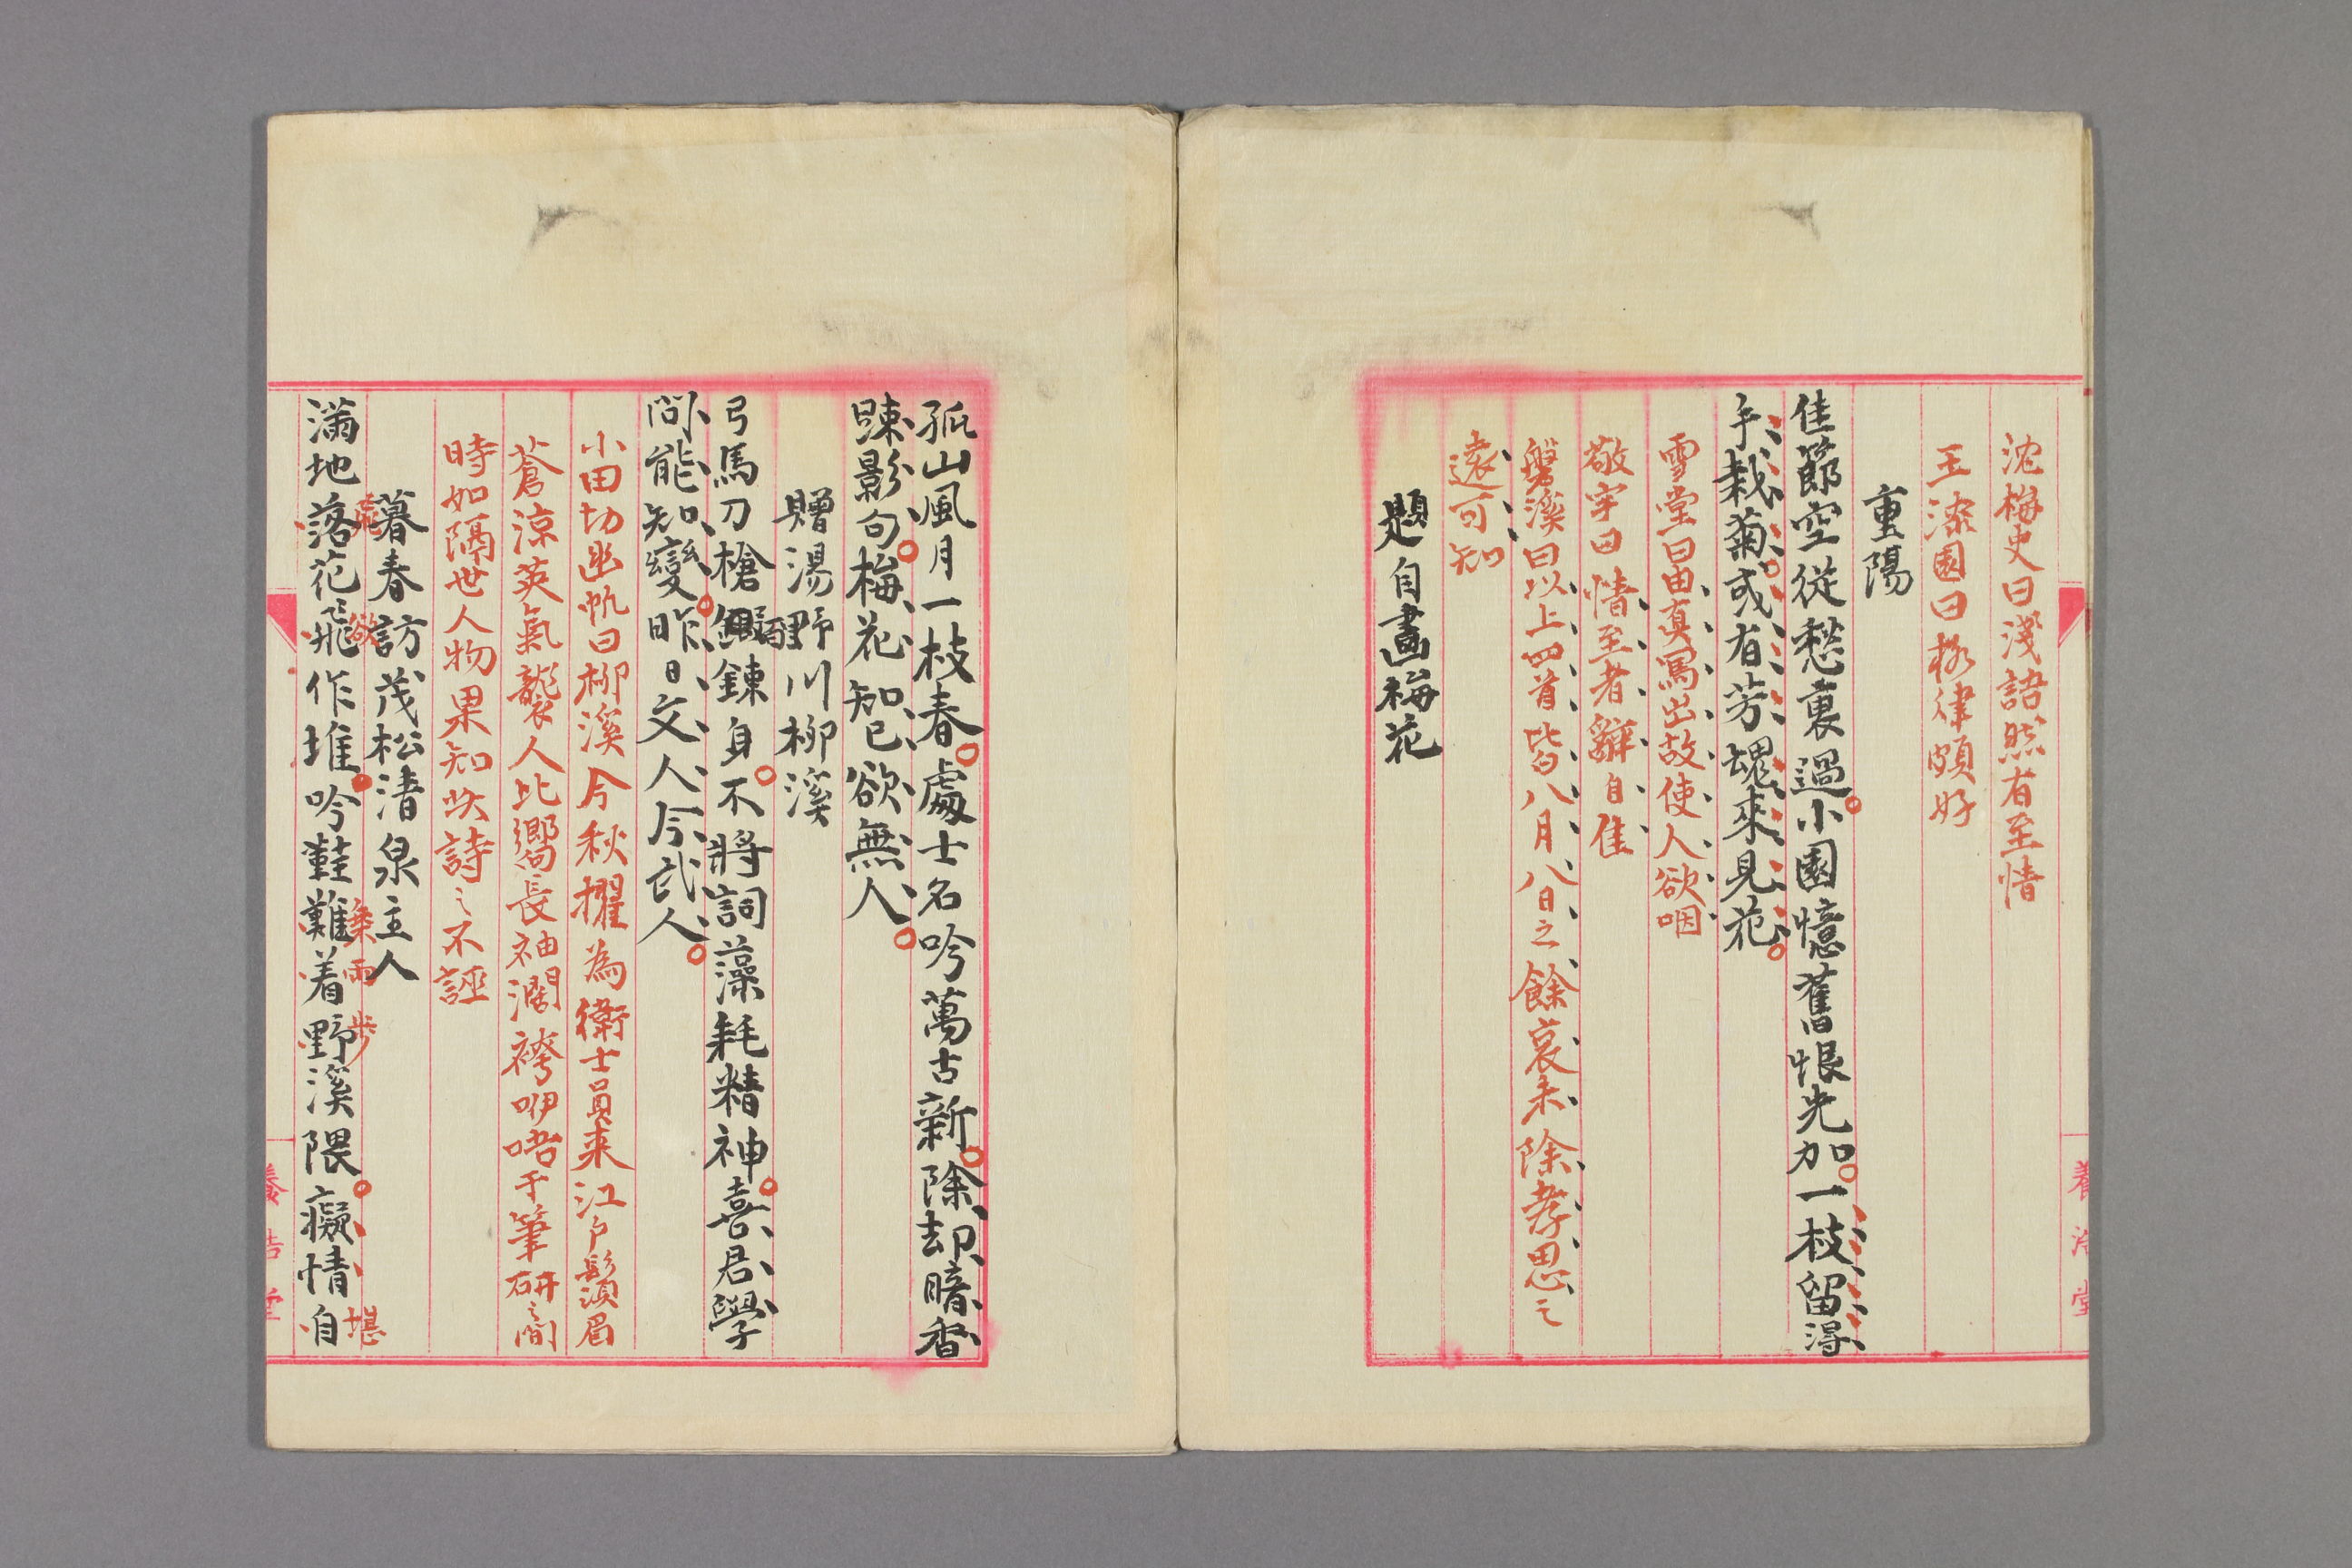 沈梅史曰淺語然有至情
王漆園曰格律頗好
重陽
佳節空從愁裏過小園憶舊恨尤加一枝留得
手栽菊或有芳魂來見花
雪堂曰由真寫出故使人欲咽
敬宇曰情至者辭自佳
磐溪曰以上四首皆八月八日之餘哀未除孝思之
遠可知
題自畫梅花
養浩堂
孤山風月一枝春處士名吟萬古新除却暗香
踈影句梅花知己欲無人
贈湯野川柳溪
弓馬刀槍鍊身不將詞藻耗精神喜君學
問能知變昨日文人今武人
小田切幽帆曰柳溪今秋擢為衛士員来江戶鬚眉
蒼凉英氣襲人比嚮長袖濶袴咿唔于筆研之間
時如隔世人物果知此詩之不誣
暮春訪茂松清泉主人
滿地落花飛作堆吟鞋難着野溪隈癡情自
欲
乗雨步
堪
養浩堂